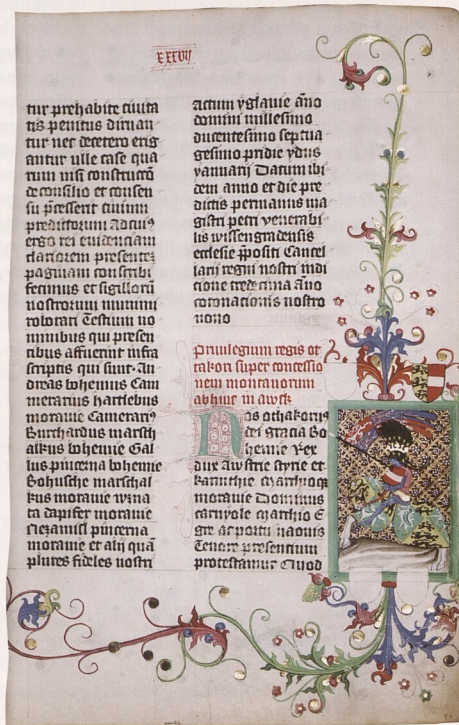 xxxvij
tur prehabite ciuita
tis penitus diruan
tur nec decetero erig
antur ulle case qua
rum nisi construccō
de consilio et consen
su p̄cesserit ciuium
predictorum Ad cuiꝰ
ergo rei euidenciam
clariorem presentē
paginam conscribi
fecimus et sigillorū
nostrorum munimī
roborari Testium no
minibus qui presen
tibus affuerint infra
scriptis qui sunt · An
dreas bohemus Cam
merarius hartlebus
morauie Camerariꝰ
Burchardus marsch
alkus bohemie Gal
lus pincerna bohemie
Bohusche marschal
kus morauie
ta dapifer morauie
Nezamisl pincerna
morauie et alij quā
plures fideles nostri
actum yglauie āno
domini millesimo
ducentesimo septua
gesimo pridie ydus
yanuarij Datum ibi
dem anno et die pre
dictis per manus ma
gistri petri venerabi
lis wissengradensis
ecclesie p̄positi Cancel
larij regni nostri indi
cione tredecima āno
coronacionis nostre
nono
Priuilegium regis ot
takori super concessio
nem montanorum
ab hinc in
Nos othakorus
dei gracia Bo
hemie Rex
dux Awstrie styrie et
karinthie marchioqꝫ
morauie Dominus
carniole marchio E
gre ac portu naonis
Tenore presentium
protestamur Quod